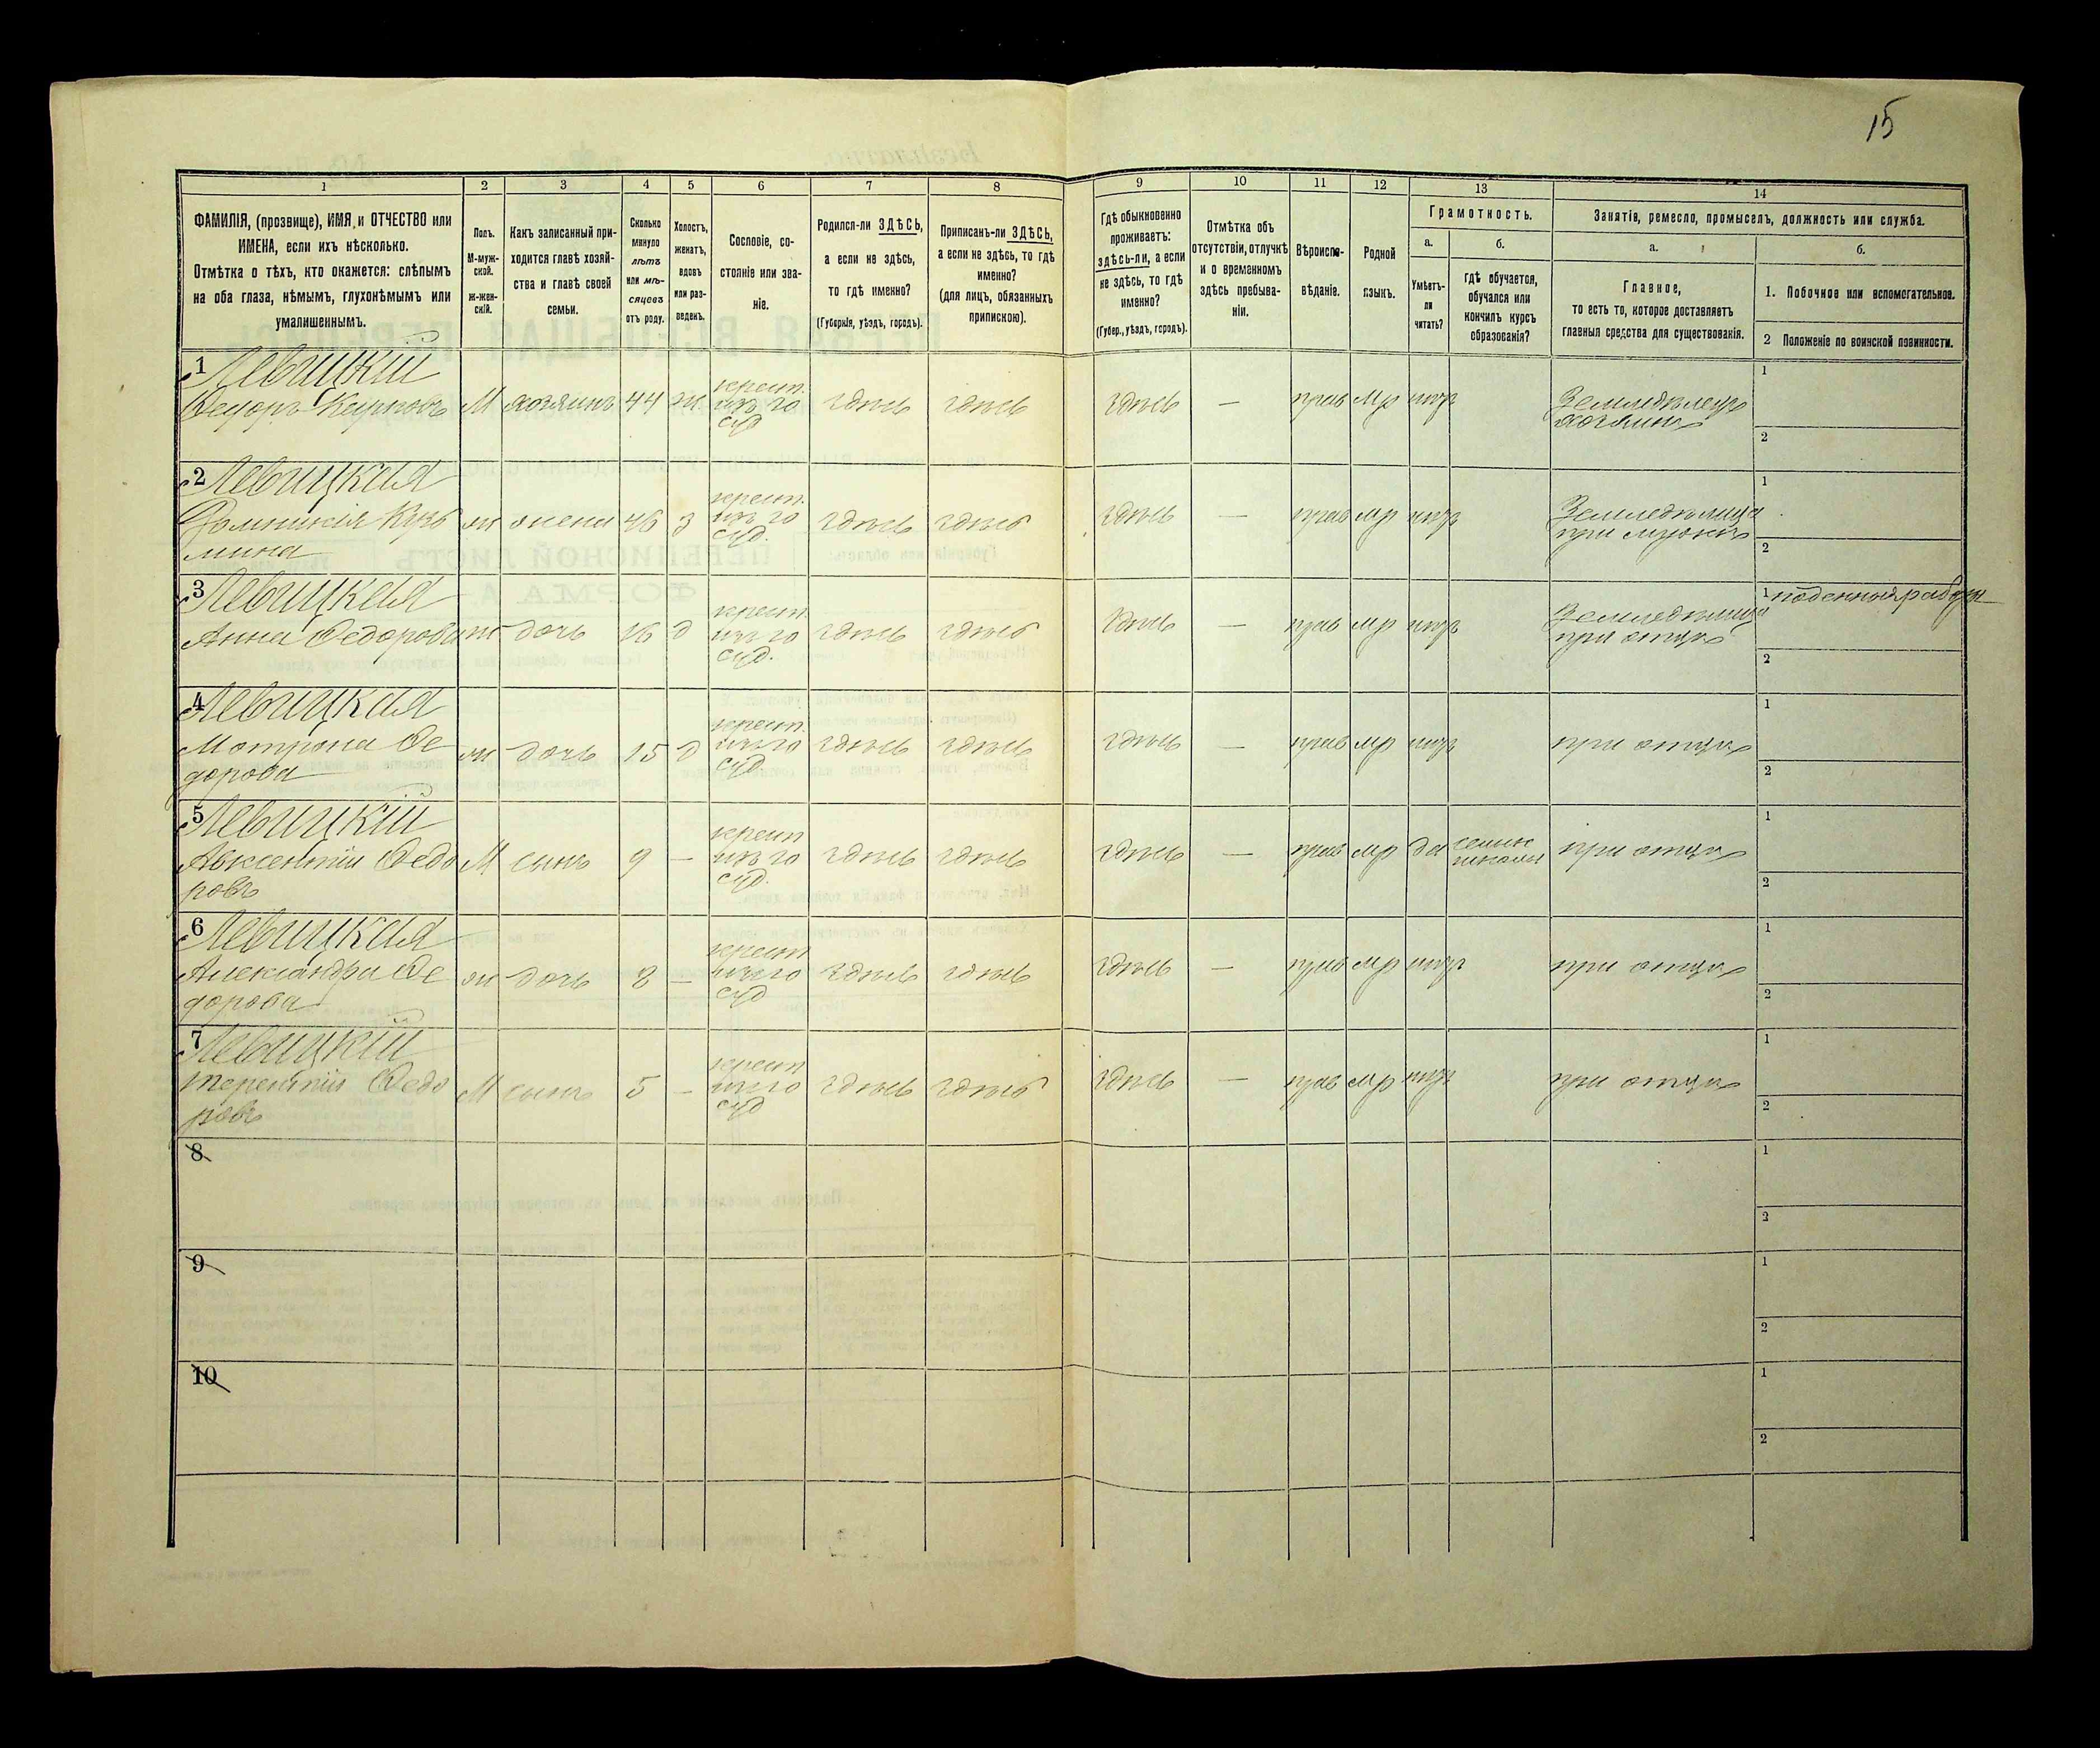 15
1 2 3 4 5 6 7 8 9 10 11 12 13 14
ФАМИЛІЯ, (прозвище), ИМЯ и ОТЧЕСТВО или
ИМЕНА, если ихъ нѣсколько.
Отмѣтка о тѣхъ, кто окажется: слѣпымъ
на оба глаза, нѣмымъ, глухонѣмымъ или
умалишеннымъ.
Полъ.
М-муж-
ской.
Ж-жен-
скій.
Какъ записанный при-
ходится главѣ хозяй-
ства и главѣ своей
семьи.
Сколько
минуло
лѣтъ
или мѣ-
сяцевъ
отъ роду.
Холостъ,
женатъ,
вдовъ
или раз-
веденъ.
Сословіе, со-
стояніе или зва-
ніе.
Родился-ли ЗДѢСЬ,
а если не здѣсь,
то гдѣ именно?
(Губернія, уѣздъ, городъ).
Приписанъ-ли ЗДѢСЬ,
а если не здѣсь, то гдѣ
именно?
(для лицъ, обязанныхъ
припискою).
Гдѣ обыкновенно
проживаетъ:
здѣсь-ли, а если
не здѣсь, то гдѣ
именно?
(Губер., уѣздъ, городъ).
Отмѣтка объ
отсутствіи, отлучкѣ
и о временномъ
здѣсь пребыва-
ніи.
Вѣроиспо-
вѣданіе.
Родной
языкъ.
Грамотность.
а.
Умѣетъ-
ли
читать?
б.
Гдѣ обучается,
обучался или
кончилъ курсъ
образованія?
Занятіе, ремесло, промыселъ, должность или служба.
а.
Главное,
то есть то, которое доставляетъ
главныя средства для существованія.
б.
1. Побочное или вспомогательное.
2 Положеніе по воинской повинности.
1 Левицкій
Ѳедоръ Карповъ М хозяинъ 44 ж. крест. здѣсь здѣсь здѣсь — прав мр нѣтъ Земледѣлецъ
хозяинъ
1
2
2 Левицкая
Домникія Кузь
мина ж жена 46 з крест. здѣсь здѣсь здѣсь — прав мр нѣтъ Земледѣлица
при мужѣ
1
2
3 Левицкая
Анна Ѳедорова ж дочь 16 д крест. здѣсь здѣсь здѣсь — прав мр нѣтъ Земледѣлица
при отцѣ
1 поденная работ
2
4 Левицкая
Мотрона Ѳе
дорова ж дочь 15 д крест. здѣсь здѣсь здѣсь — прав мр нѣтъ при отцѣ
1
2
5 Левицкій
Авксентій Ѳедо
ровъ М сынъ 9 — крест здѣсь здѣсь здѣсь — прав мр да школы при отцѣ
1
2
6 Левицкая
Александра Ѳе
дорова ж дочь 8 — крест здѣсь здѣсь здѣсь — прав мр нѣтъ при отцѣ
1
2
7 Левицкій
Терентій Ѳедо
ровъ М сынъ 5 — крест здѣсь здѣсь здѣсь — прав мр нѣтъ при отцѣ
1
2
8
1
2
9
1
2
10
1
2